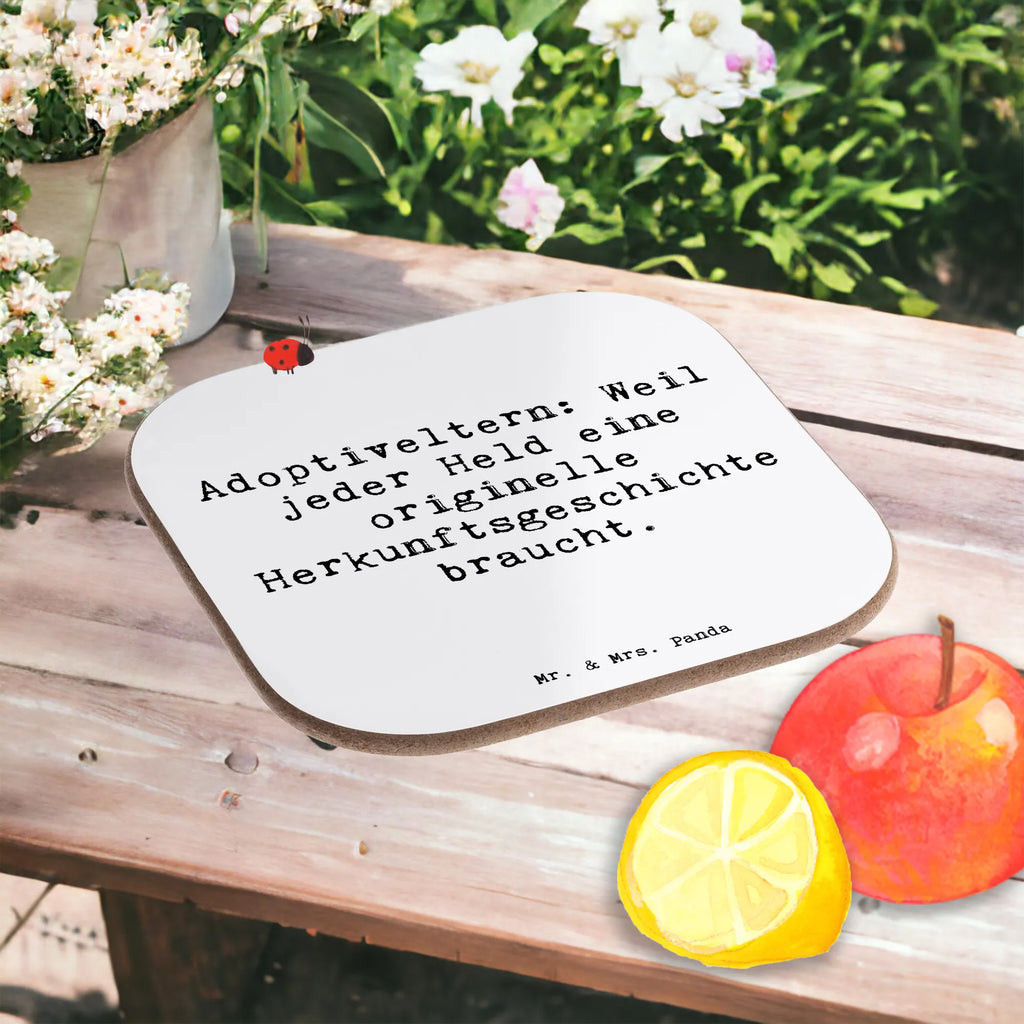 Adoptiveltern: Weil
jeder Held eine
originelle
Herkunftsgeschichte
braucht.
Mr. & Mrs. Panda